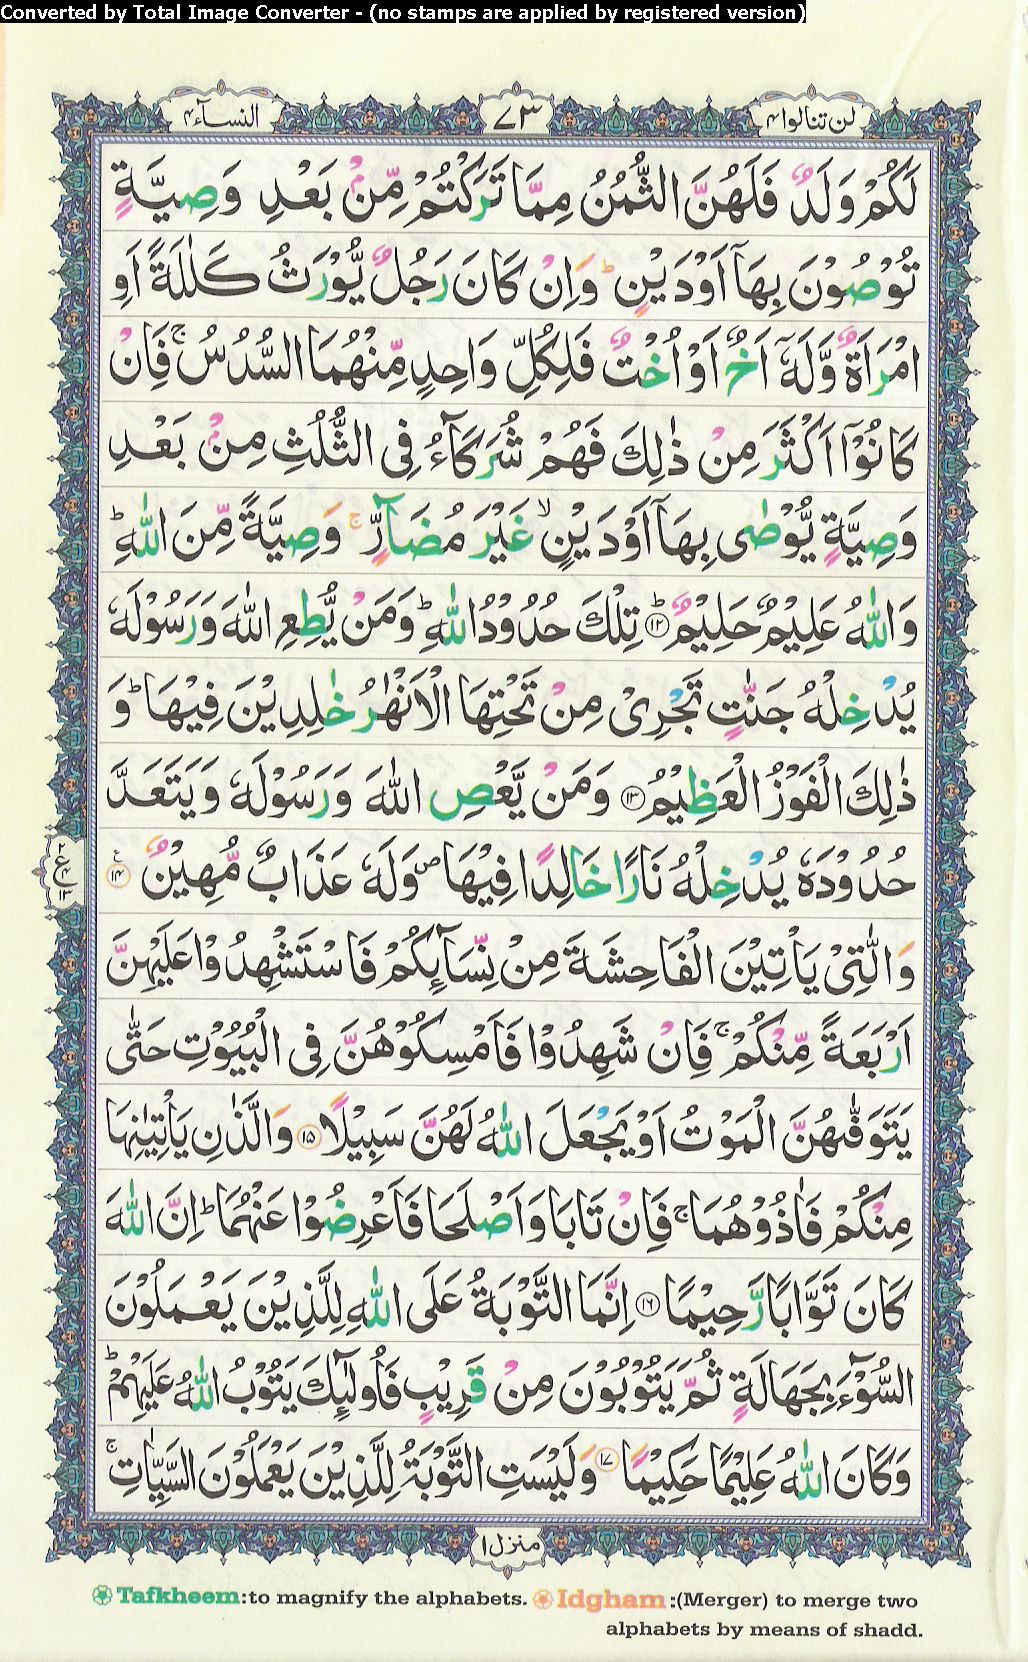 Converted by Total Image Converter - (no stamps are applied by registered version)
لن تنالوا ۴ ۷۳ النسآء ۴
لَكُمْ وَلَدٌ فَلَهُنَّ الثُّمُنُ مِمَّا تَرَكْتُمْ مِّنْۢ بَعْدِ وَصِيَّةٍ
تُوْصُوْنَ بِهَاۤ اَوْ دَيْنٍ ؕ وَاِنْ كَانَ رَجُلٌ يُّوْرَثُ كَلٰلَةً اَوِ
امْرَاَةٌ وَّلَهٗۤ اَخٌ اَوْ اُخْتٌ فَلِكُلِّ وَاحِدٍ مِّنْهُمَا السُّدُسُ ۚ فَاِنْ
كَانُوْۤا اَكْثَرَ مِنْ ذٰلِكَ فَهُمْ شُرَكَآءُ فِى الثُّلُثِ مِنْۢ بَعْدِ
وَصِيَّةٍ يُّوْصٰى بِهَاۤ اَوْ دَيْنٍ ۙ غَيْرَ مُضَآرٍّ ۚ وَصِيَّةً مِّنَ اللّٰهِ ؕ
وَاللّٰهُ عَلِيْمٌ حَلِيْمٌ ؕ ۱۲ تِلْكَ حُدُوْدُ اللّٰهِ ؕ وَمَنْ يُّطِعِ اللّٰهَ وَرَسُوْلَهٗ
يُدْخِلْهُ جَنّٰتٍ تَجْرِىْ مِنْ تَحْتِهَا الْاَنْهٰرُ خٰلِدِيْنَ فِيْهَا ؕ وَ
ذٰلِكَ الْفَوْزُ الْعَظِيْمُ ۱۳ وَمَنْ يَّعْصِ اللّٰهَ وَرَسُوْلَهٗ وَيَتَعَدَّ
حُدُوْدَهٗ يُدْخِلْهُ نَارًا خَالِدًا فِيْهَا ۪ وَلَهٗ عَذَابٌ مُّهِيْنٌ ۱۴
ع ۲ ۴ ۱۳
وَالّٰتِىْ يَاْتِيْنَ الْفَاحِشَةَ مِنْ نِّسَآئِكُمْ فَاسْتَشْهِدُوْا عَلَيْهِنَّ
اَرْبَعَةً مِّنْكُمْ ۚ فَاِنْ شَهِدُوْا فَاَمْسِكُوْهُنَّ فِى الْبُيُوْتِ حَتّٰى
يَتَوَفّٰهُنَّ الْمَوْتُ اَوْ يَجْعَلَ اللّٰهُ لَهُنَّ سَبِيْلًا ۱۵ وَالَّذٰنِ يَاْتِيٰنِهَا
مِنْكُمْ فَاٰذُوْهُمَا ۚ فَاِنْ تَابَا وَاَصْلَحَا فَاَعْرِضُوْا عَنْهُمَا ؕ اِنَّ اللّٰهَ
كَانَ تَوَّابًا رَّحِيْمًا ۱۶ اِنَّمَا التَّوْبَةُ عَلَى اللّٰهِ لِلَّذِيْنَ يَعْمَلُوْنَ
السُّوْٓءَ بِجَهَالَةٍ ثُمَّ يَتُوْبُوْنَ مِنْ قَرِيْبٍ فَاُولٰٓئِكَ يَتُوْبُ اللّٰهُ عَلَيْهِمْ ؕ
وَكَانَ اللّٰهُ عَلِيْمًا حَكِيْمًا ۱۷ وَلَيْسَتِ التَّوْبَةُ لِلَّذِيْنَ يَعْمَلُوْنَ السَّيِّاٰتِ ۚ
منزل ۱
Tafkheem:to magnify the alphabets. Idgham :(Merger) to merge two
alphabets by means of shadd.